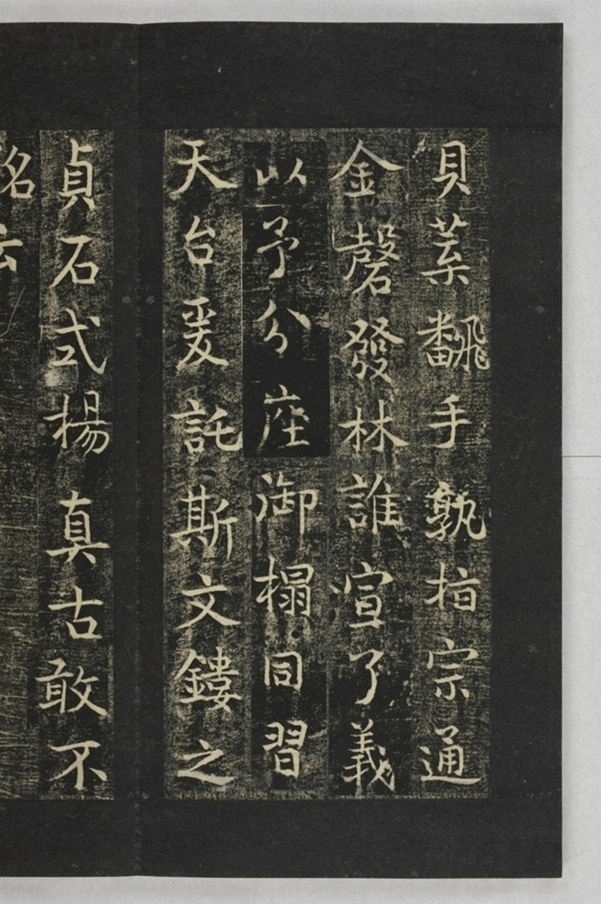 貝葉翻手孰指宗通
金磬發林誰宣了義
以予分座御榻同習
天台爰託斯文鏤之
貞石式揚真古敢不
銘云